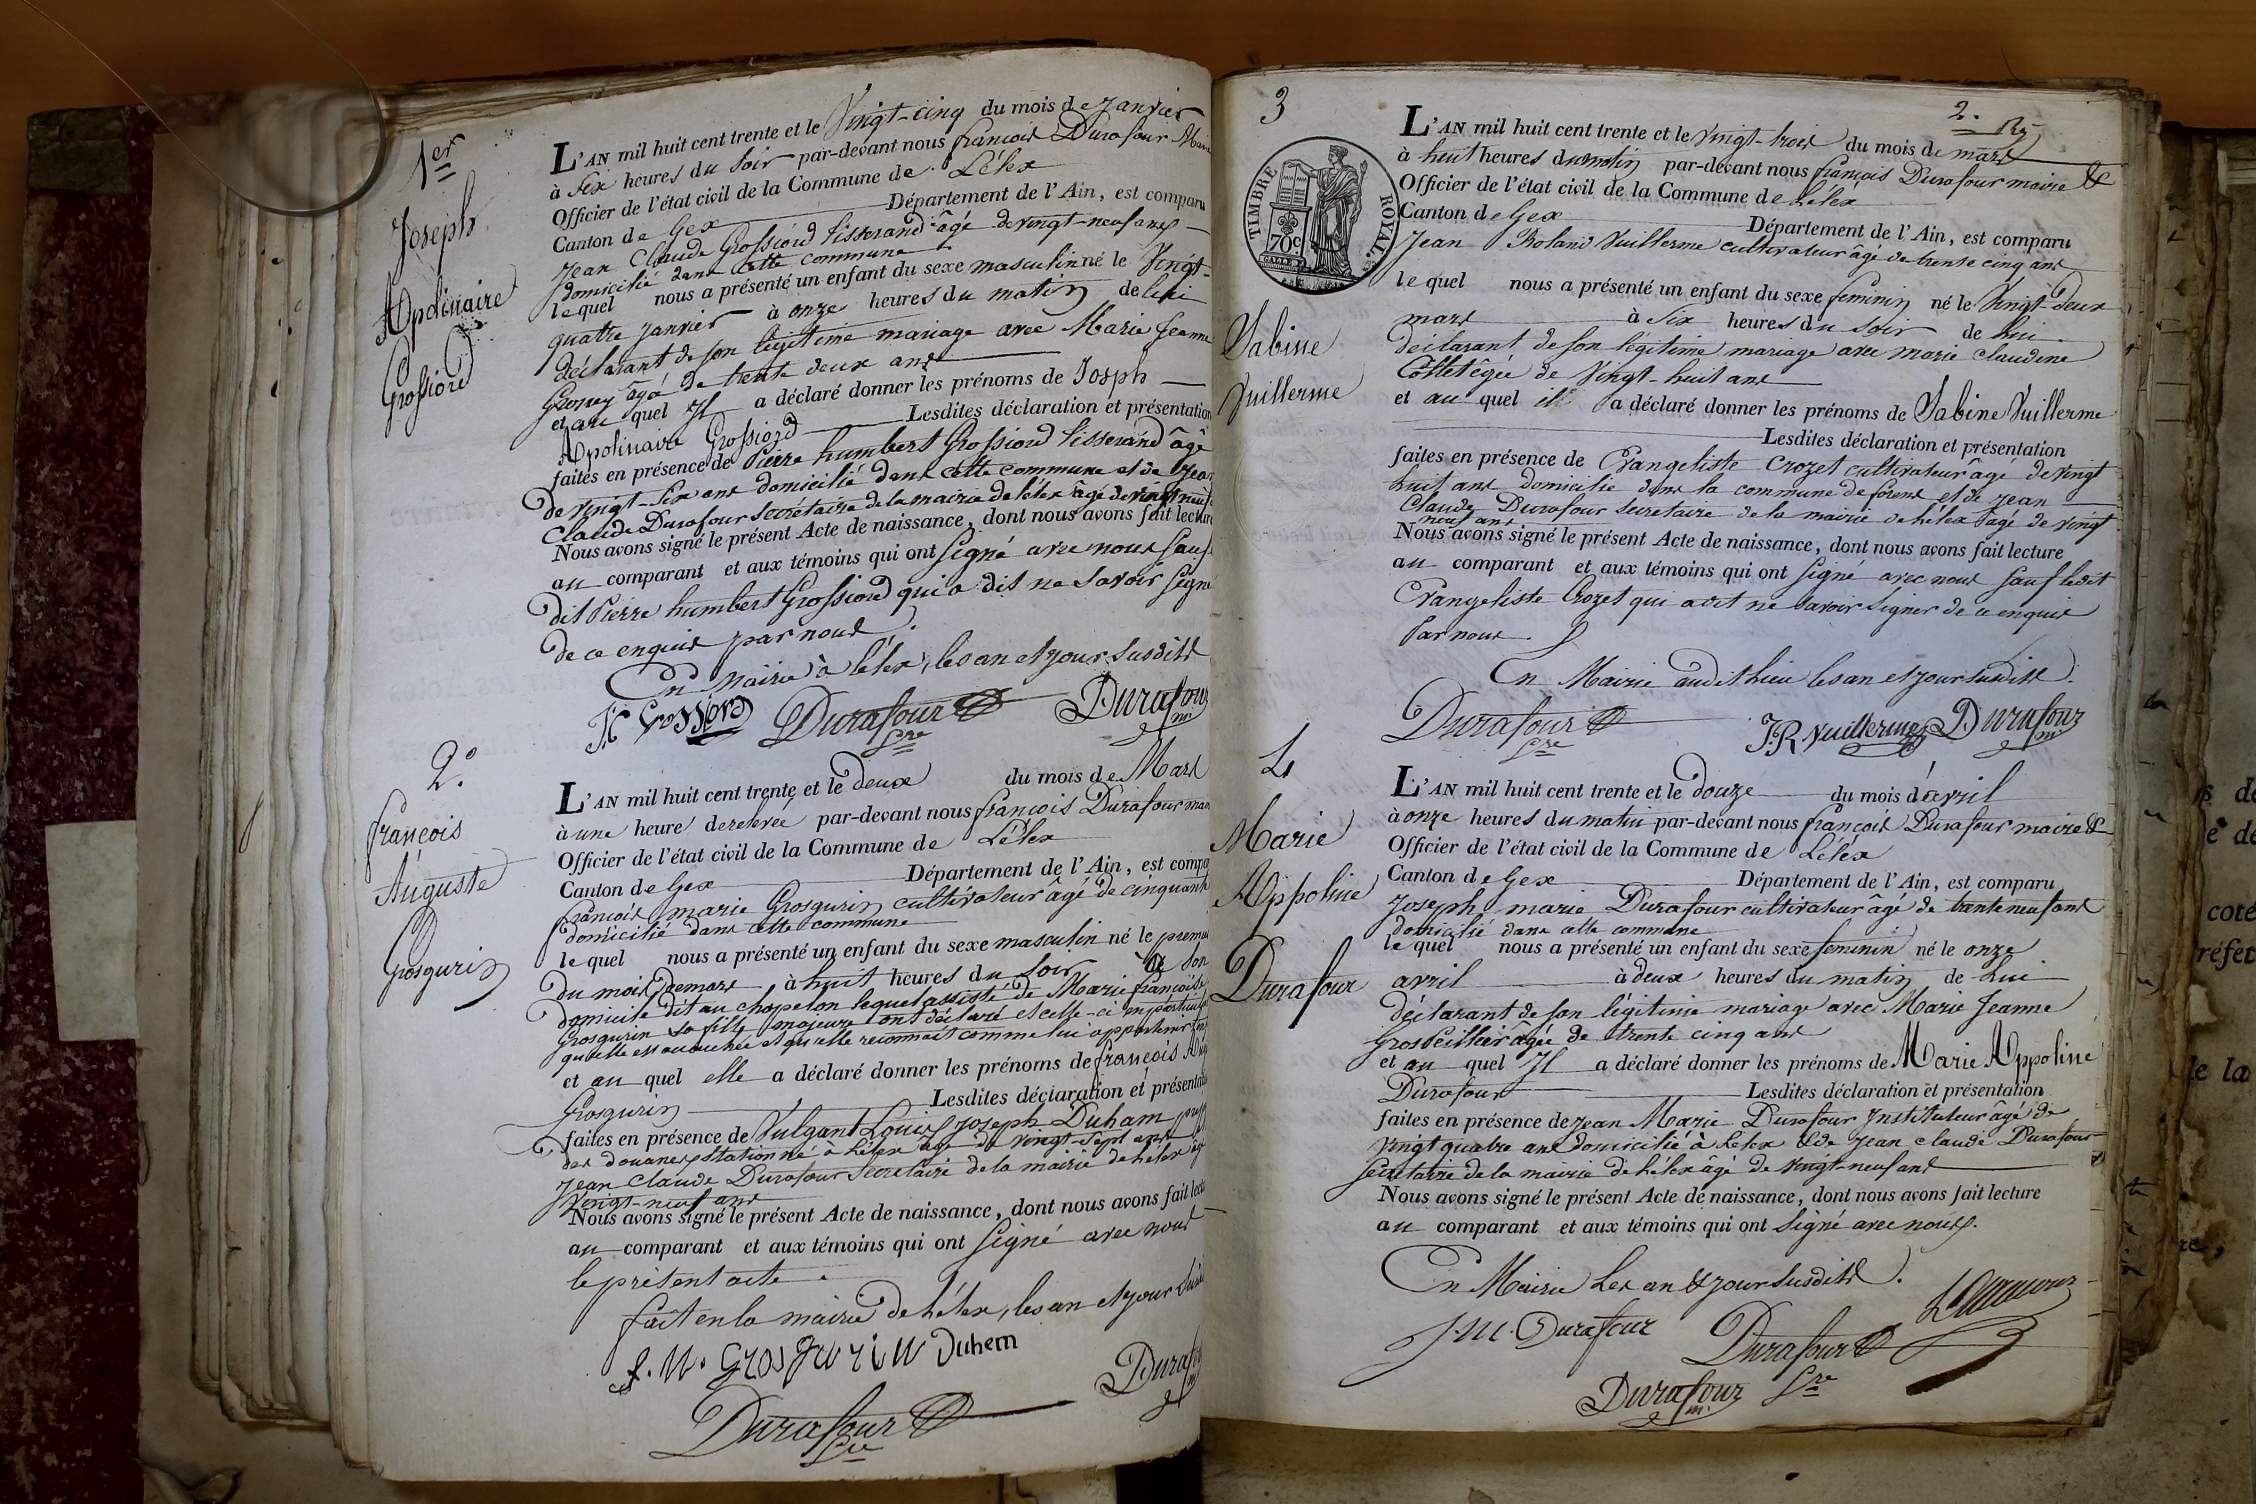 1er
Joseph
Apolinaire
Grossiord
L'AN mil huit cent trente et le Vingt-cinq du mois de Janvier
à Six heures du Soir par-devant nous françois Durafour Maire
Officier de l'état civil de la Commune de Lélex
Canton de Gex Département de l'Ain, est comparu
Jean Claude Grossiord tisserand âgé de vingt-neuf ans
domicilié dans cette commune
le quel nous a présenté un enfant du sexe masculin né le Vingt-
quatre Janvier à onze heures du matin de lui
déclarant de son légitime mariage avec Marie Jeanne
âgé de trente deux ans
et au quel Il a déclaré donner les prénoms de Josph
Apolinaire Grossiord Lesdites déclaration et présentation
faites en présence de Pierre humbert Grossiord tisserand âgé
de vingt-six ans domicilié dans cette commune et de Jean
Claude Durafour Secrétaire de la mairie de lélex âgé de vingt neuf
Nous avons signé le présent Acte de naissance, dont nous avons fait lecture
au comparant et aux témoins qui ont signé avec nous sauf
dit Pierre humbert Grossiord qui a dit ne Savoir signe
de ce enquis par nous.
En Mairie à lélex, les an et jour susdits
Durafour Sre Durafour m.
2.
françois
Auguste
Grosgurin
L'AN mil huit cent trente et le deux du mois de Mars
à une heure de relevée par-devant nous françois Durafour
Officier de l'état civil de la Commune de Lélex
Canton de Gex Département de l'Ain, est compa
françois marie Grosgurin cultivateur âgé de cinquante
domicilié dans cette commune
le quel nous a présenté un enfant du sexe masculin né le premier
du mois de mars à huit heures du soir de son
domicile dit au chapelon lequel assisté de Marie françoise
Grosgurin sa fille majeure ont déclaré et celle-ci en particulier
qu'elle est accouchée et qu'elle reconnait comme lui appartenir
et au quel elle a déclaré donner les prénoms de françois
Grosgurin Lesdites déclaration et présentat
faites en présence de Vulgant Louis Joseph Duham
des douanes stationné à Lélex âgé de vingt-sept ans
Jean Claude Durafour Secretaire de la mairie de lélex
Vingt-neuf ans
Nous avons signé le présent Acte de naissance, dont nous avons fait lect
au comparant et aux témoins qui ont signé avec nous
le présent acte.
fait en la mairie de Lélex, les an et jour
f. M. Grosgurin Duhem
Durafour Sre
3
2.
TIMBRE ROYAL.
70c
Sabine
Vuillerme
L'AN mil huit cent trente et le vingt-trois du mois de mars
à huit heures du matin par-devant nous françois Durafour maire &
Officier de l'état civil de la Commune de Lélex
Canton de Gex Département de l'Ain, est comparu
Jean Roland Vuillerme cultivateur âgé de trente cinq ans
le quel nous a présenté un enfant du sexe feminin né le Vingt-deux
mars à Six heures du Soir de lui
déclarant de son légitime mariage avec marie claudine
Colletêgée de Vingt-huit ans
et au quel il a déclaré donner les prénoms de Sabine Vuillerme
Lesdites déclaration et présentation
faites en présence de Evangeliste Crozet cultivateur âgé de vingt
huit ans domicilié dans la commune de forens et de Jean
Claude Durafour Secretaire de la mairie de lélex âgé de vingt
neuf ans
Nous avons signé le présent Acte de naissance, dont nous avons fait lecture
au comparant et aux témoins qui ont signé avec nous sauf ledit
Evangeliste Crozet qui a dit ne savoir signer de ce enquis
Par nous.
En Mairie audit lieu les an et jour susdits.
Durafour Sre J.R Vuillerme Durafour m.
4
Marie
Appoline
Durafour
L'AN mil huit cent trente et le douze du mois d'avril
à onze heures du matin par-devant nous françois Durafour maire &
Officier de l'état civil de la Commune de Lélex
Canton de Gex Département de l'Ain, est comparu
Joseph marie Durafour cultivateur âgé de trente neuf ans
domicilié dans cette commune
le quel nous a présenté un enfant du sexe feminin né le onze
avril à deux heures du matin de Lui
déclarant de son légitime mariage avec Marie Jeanne
âgée de trente cinq ans
et au quel Il a déclaré donner les prénoms de Marie Appoline
Durafour Lesdites déclaration et présentation
faites en présence de Jean Marie Durafour Instituteur agé de
Vingt quatre ans domicilié à Lélex & de Jean claude Durafour
Secretaire de la mairie de lélex âgé de vingt-neuf ans
Nous avons signé le présent Acte de naissance, dont nous avons fait lecture
au comparant et aux témoins qui ont Signé avec nous.
En Mairie Les an & jour susdits.
J.M. Durafour Durafour Sre
Durafour m.
coté
le la